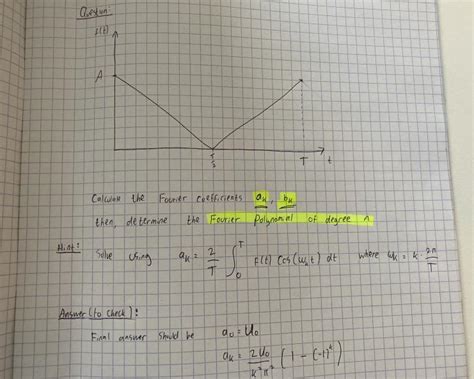 Question:
f(t)
A
T/2
T
t
Calculate the Fourier coefficients a_k, b_k
then, determine the Fourier Polynomial of degree n
Hint: Solve using a_k = 2/T ∫_0^T f(t) cos(ω_k t) dt where ω_k = k · 2π/T
Answer (to check):
Final answer should be a_0 = U_0
a_k = 2U_0/k²π² (1 - (-1)^k)